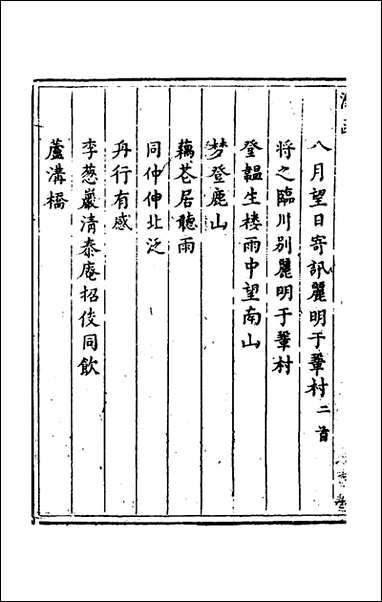 八月望日寄訊麗明于鞏村二首
將之臨川別麗明于鞏村
登韞生楼雨中望南山
梦登鹿山
藕花居聽雨
同仲伸北泛
舟行有感
李葱巖清泰庵招俊同飲
蘆溝橋